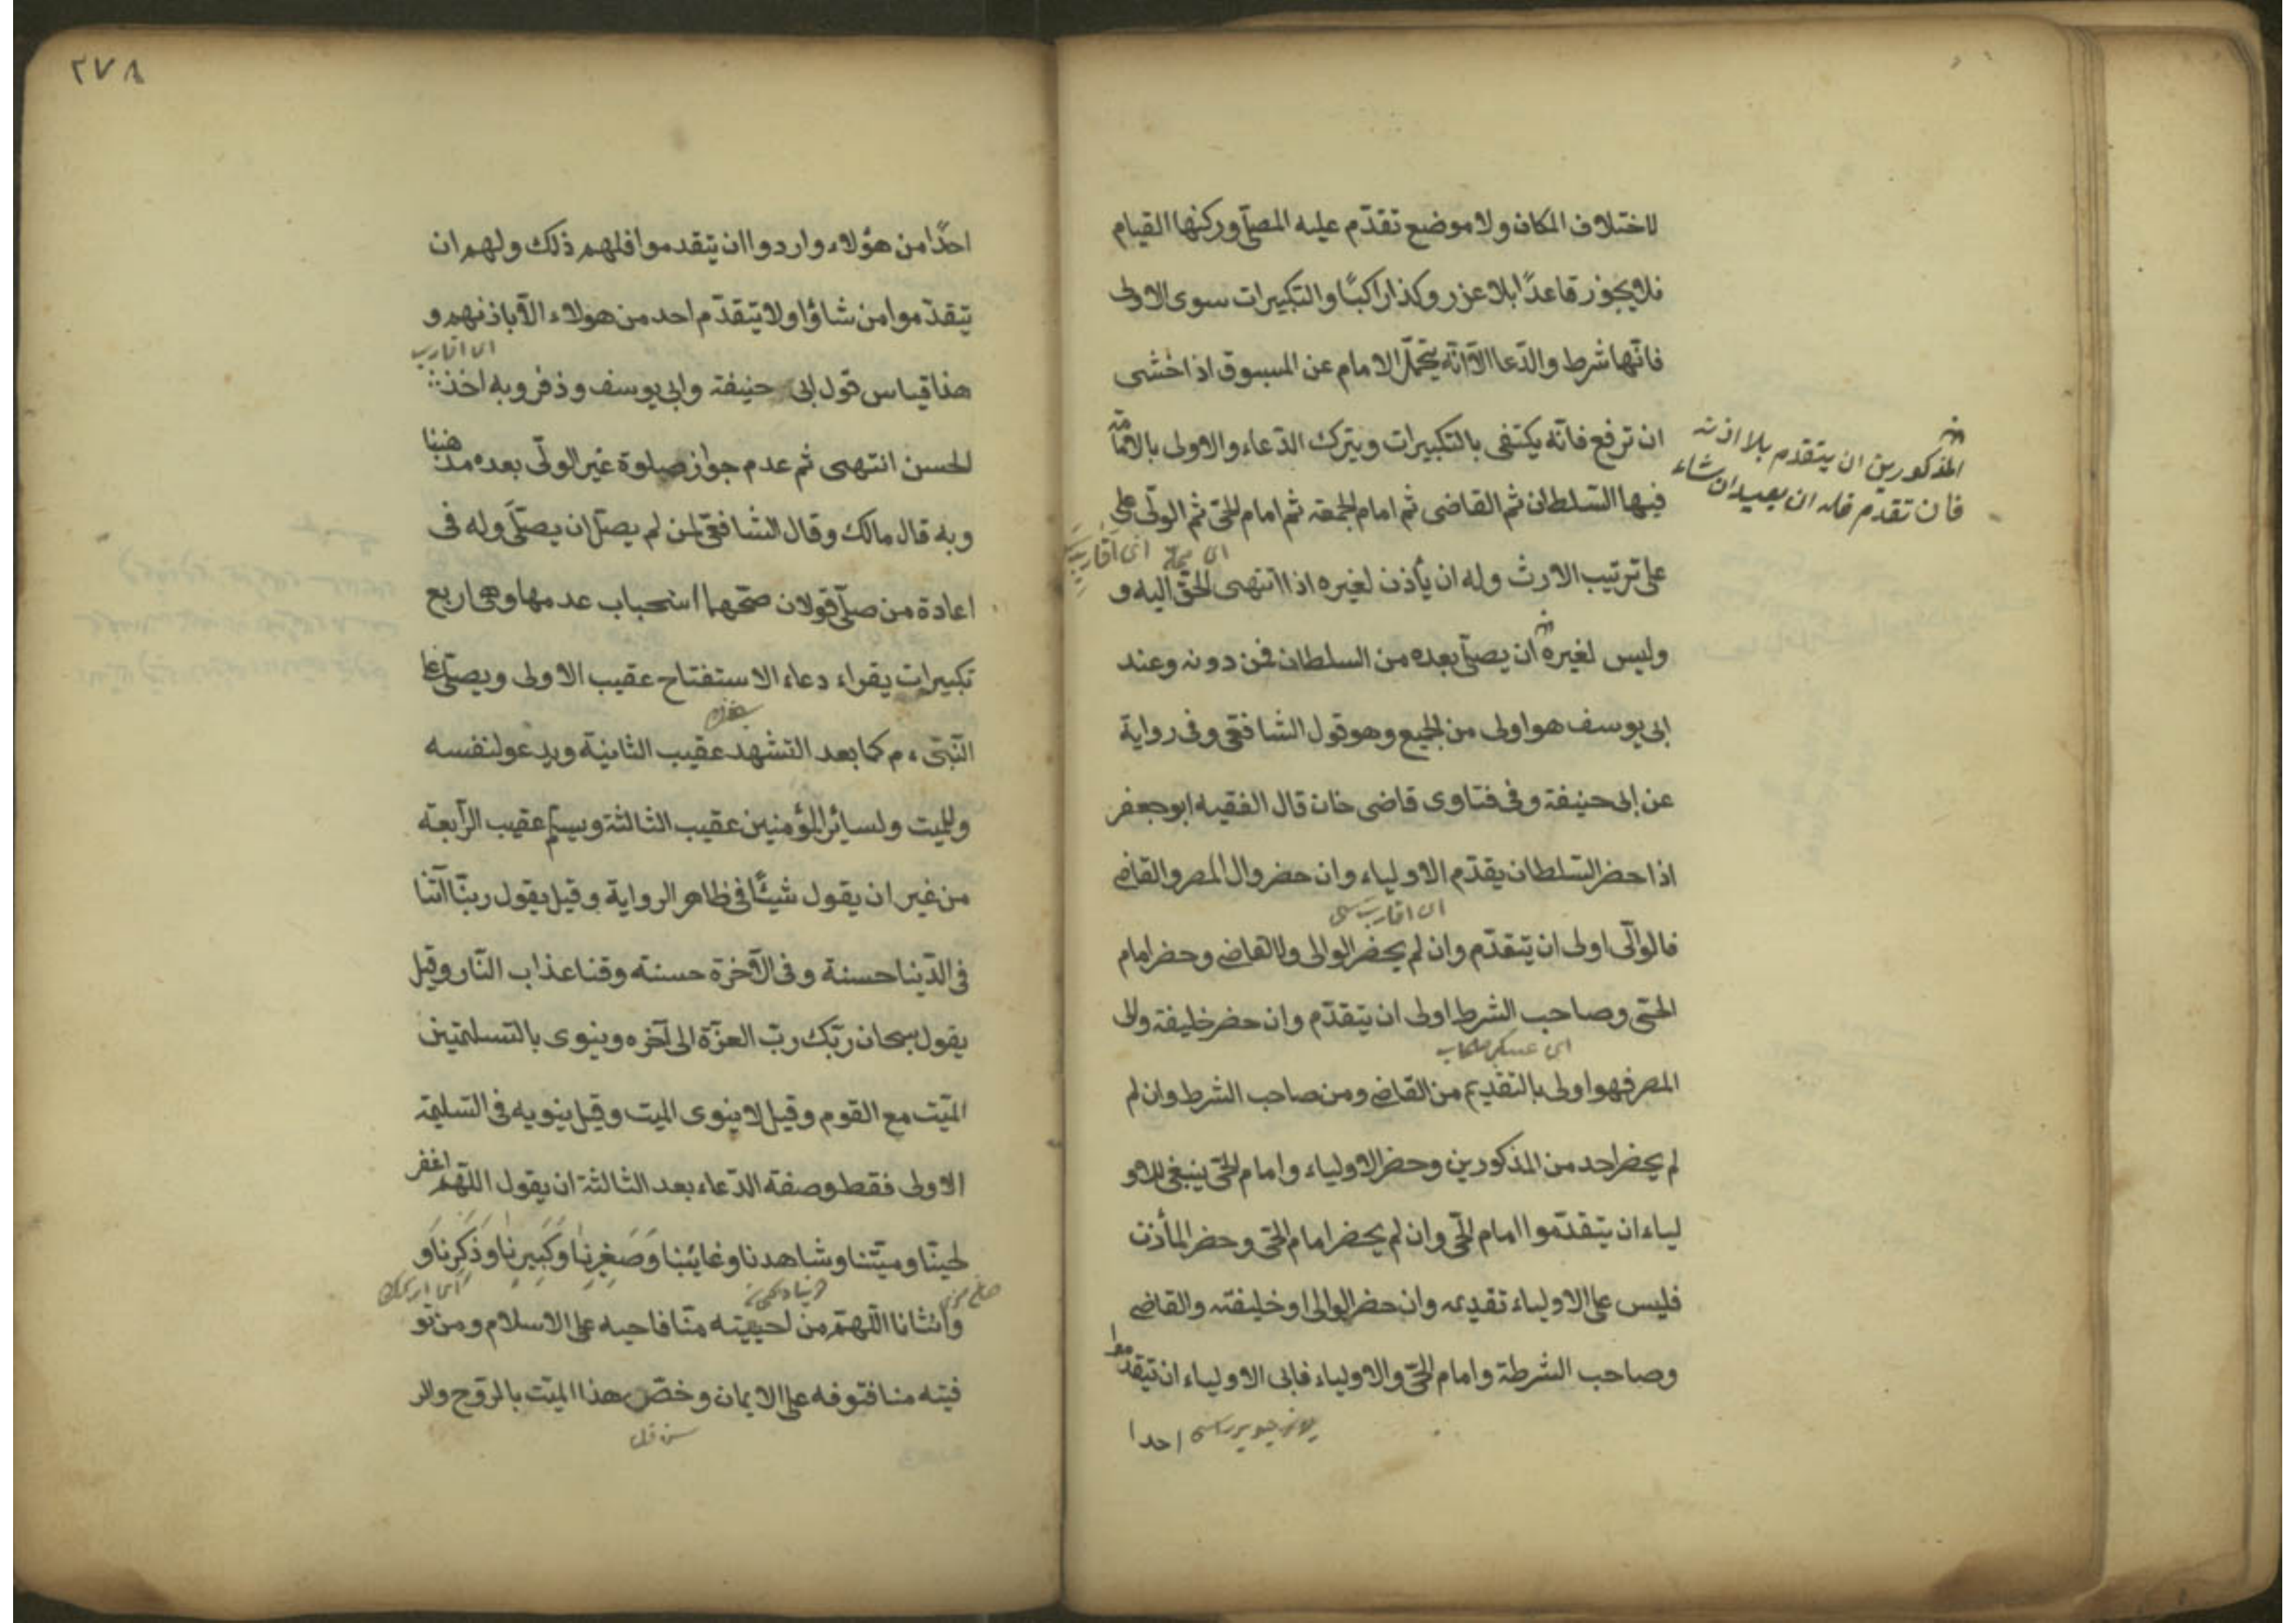 لاختلاف المكان ولا موضع تقدّم عليه المصلّى وركنها القيام
فلا يجوز قاعدًا بلا عزر وكذا راكبًا والتكبيرات سوى الاولى
فانّها شرط والدّعا الاّ انّه يتحمّل الامام عن المسبوق اذا خشى
ان ترفع فانّه يكتفى بالتكبيرات ويترك الدّعاء والاولى بالامامة
فيها السّلطان ثم القاضى ثم امام الجمعة ثم امام الحىّ ثم الولّى على
على ترتيب الارث وله ان يأذن لغيره اذا انتهى الحقّ اليه و
وليس لغيره ان يصلّى بعده من السلطان فمن دونه وعند
ابى يوسف هو اولى من الجميع وهو قول الشافعى وفى رواية
عن ابى حنيفة وفى فتاوى قاضى خان قال الفقيه ابو جعفر
اذا حضر السّلطان يقدّم الاولياء وان حضر وال المصر والقاضى
فالوالّى اولى ان يتقدّم وان لم يحضر الوالى ولا القاضى وحضر امام
الحىّ وصاحب الشرط اولى ان يتقدّم وان حضر خليفة والى
المصر فهو اولى بالتقديم من القاضى ومن صاحب الشرط وان لم
لم يحضر احد من المذكورين وحضر الاولياء وامام الحىّ ينبغى للاو
لياء ان يتقدّموا امام الحىّ وان لم يحضر امام الحىّ وحضر المأذن
فليس على الاولياء تقديمه وان حضر الوالى او خليفته والقاضى
وصاحب الشرطة وامام الحىّ والاولياء فابى الاولياء ان يتقدموا
احدا
المذكورين ان يتقدم بلا اذنه
فان تقدم فله ان يعيد ان شاء
اى اقارب
٢٧٨
احدًا من هؤلاء واردوا ان يتقدموا فلهم ذلك ولهم ان
يتقدّموا من شاؤا ولا يتقدّم احد من هولاء الاّ باذنهم و
اى اقارب
هذا قياس قول ابى حنيفة وابى يوسف وذفر وبه اخذ
الحسن انتهى ثم عدم جواز صلوة غير الولّى بعده مذهبنا
وبه قال مالك وقال الشافعى لمن لم يصلّ ان يصلّى وله فى
اعادة من صلّى قولان صحّهما استحباب عدمها وهى اربع
تكبيرات يقراء دعاء الاستفتاح عقيب الاولى ويصلّى على
النّبىّ ءم كما بعد التشهد عقيب الثانية ويدعو لنفسه
وللميت ولسائر المؤمنين عقيب الثالثة ويسلّم عقيب الرّابعة
من غير ان يقول شيئًا فى ظاهر الرواية وقيل يقول ربّنا آتنا
فى الدّنيا حسنة وفى الآخرة حسنة وقنا عذاب النّار وقيل
يقول سبحان ربّك ربّ العزّة الى آخره وينوى بالتسلمتين
الميّت مع القوم وقيل لا ينوى الميت وقيل ينويه فى التسليمة
الاولى فقط وصفة الدّعاء بعد الثالثة ان يقول اللّهم اغفر
لحيّنا وميّتنا وشاهدنا وغائبنا وَصَغِرِنَا وَكَبِيرِنَا وَذَكَرِنَا وَ
وانثانا اللّهمّ من احييته منّا فاحيه على الاسلام ومن تو
فيته منا فتوفه على الايمان وخصّ هذا الميّت بالروّح والر